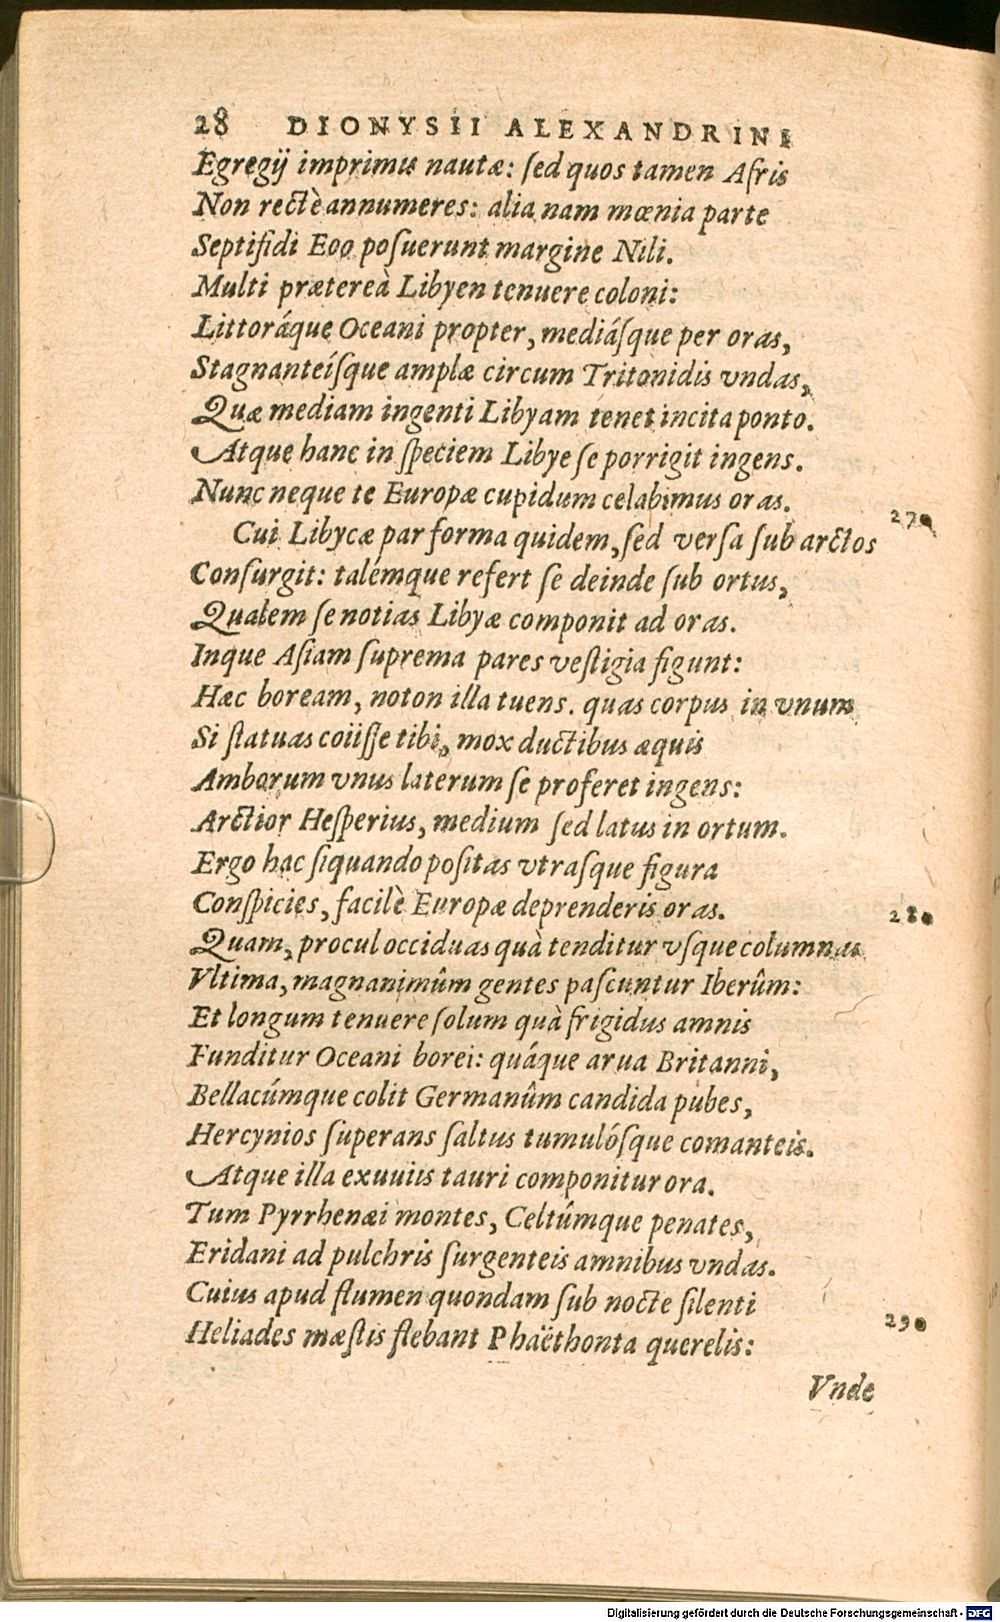 28 DIONYSII ALEXANDRINI
Egregij imprimis nautæ: ſed quos tamen Afris
Non rectè annumeres: alia nam mœnia parte
Septifidi Eoo poſuerunt margine Nili.
Multi prætereà Libyen tenuere coloni:
Littoráque Oceani propter, mediáſque per oras,
Stagnanteíſque amplæ circum Tritonidis vndas,
Quæ mediam ingenti Libyam tenet incita ponto.
Atque hanc in ſpeciem Libye ſe porrigit ingens.
Nunc neque te Europæ cupidum celabimus oras.
270
Cui Libycæ par forma quidem, ſed verſa ſub arctos
Conſurgit: talémque refert ſe deinde ſub ortus,
Qualem ſe notias Libyæ componit ad oras.
Inque Aſiam ſuprema pares veſtigia figunt:
Hæc boream, noton illa tuens. quas corpus in vnum
Si ſtatuas coiiſſe tibi, mox ductibus æquis
Amborum vnus laterum ſe proferet ingens:
Arctior Heſperius, medium ſed latus in ortum.
Ergo hac ſiquando poſitas vtraſque figura
Conſpicies, facilè Europæ deprenderis oras.
280
Quam, procul occiduas quà tenditur vſque columnas
Vltima, magnanimûm gentes paſcuntur Iberûm:
Et longum tenuere ſolum quà frigidus amnis
Funditur Oceani borei: quáque arua Britanni,
Bellacúmque colit Germanûm candida pubes,
Hercynios ſuperans ſaltus tumulóſque comanteis.
Atque illa exuuiis tauri componitur ora.
Tum Pyrrhenæi montes, Celtúmque penates,
Eridani ad pulchris ſurgenteis amnibus vndas.
Cuius apud flumen quondam ſub nocte ſilenti
290
Heliades mæſtis flebant Phaëthonta querelis:
Vnde
Digitalisierung gefördert durch die Deutsche Forschungsgemeinschaft - DFG